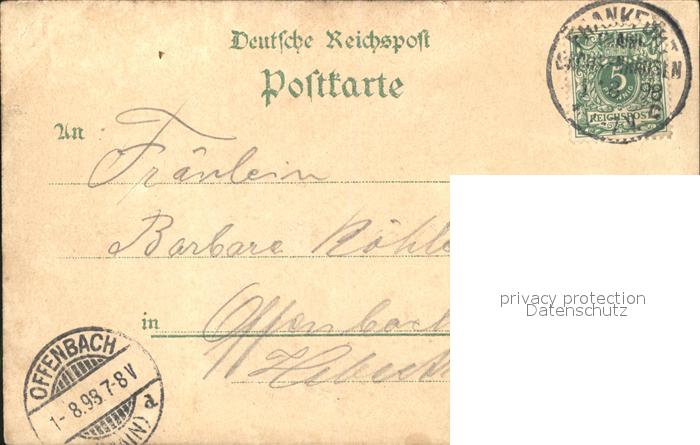 Deutsche Reichspost
Postkarte
FRANKFURT
SACHSENHAUSEN
1. 8. 98
5
REICHSPOST
An
Fräulein
Barbara
privacy protection
Datenschutz
in
Offenbach
OFFENBACH
1- 8.98 7-8 V